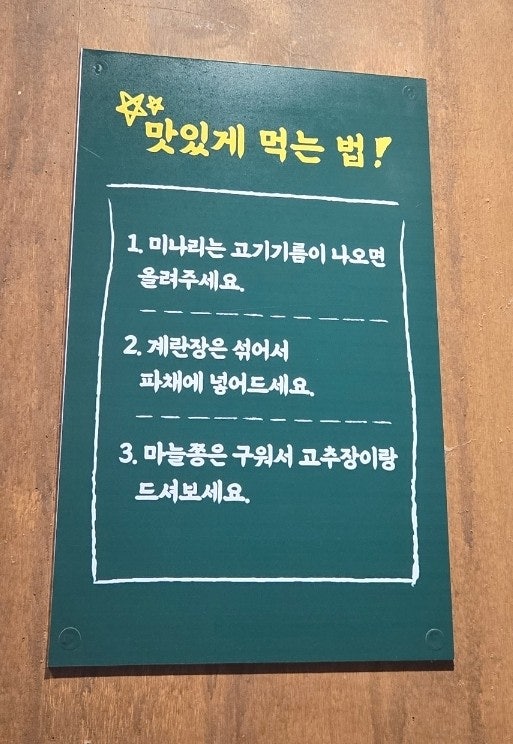 맛있게 먹는 법!
1. 미나리는 고기기름이 나오면
올려주세요.
2. 계란장은 섞어서
파채에 넣어드세요.
3. 마늘쫑은 구워서 고추장이랑
드셔보세요.